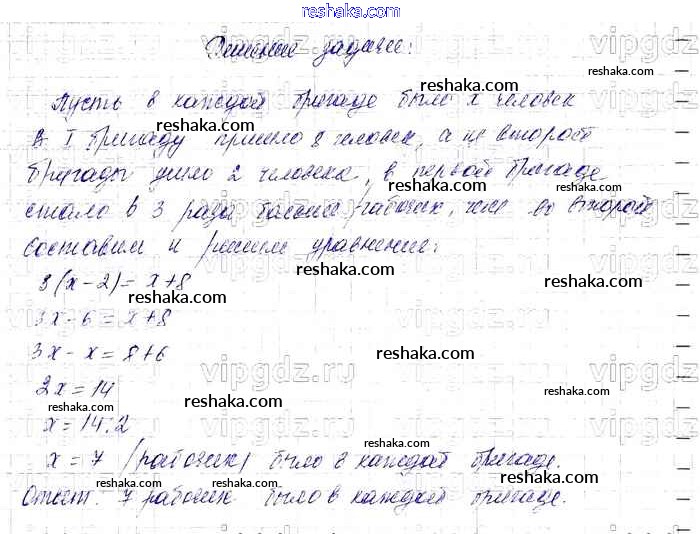 reshaka.ru
Решение задачи:
Пусть в каждой бригаде было x человек
В I бригаду пришло 8 человек, а из второй
бригады ушло 2 человека, в первой бригаде
стало в 3 раза больше рабочих, чем во второй
Составим и решим уравнение:
3(x-2)=x+8
3x-6=x+8
3x-x=8+6
2x=14
x=14:2
x=7 (рабочих) было в каждой бригаде.
Ответ. 7 рабочих было в каждой бригаде.